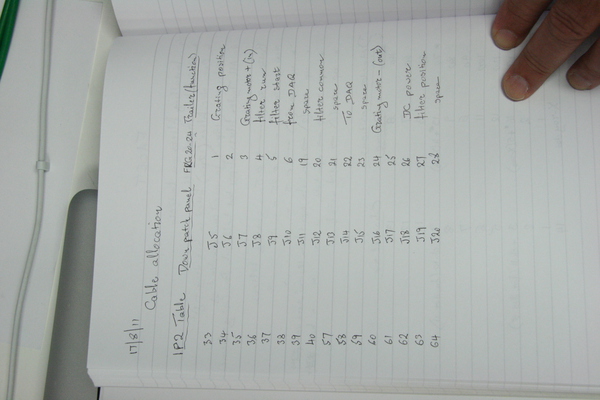 17/8/11
Cable allocation
IP2 Table Down patch panel FRG20-24 Trailer (function)
33 J5 1 Grating position
34 J6 2
35 J7 3 Grating motor + (in)
36 J8 4 filter
37 J9 5 filter start
38 J10 6 from DAQ
39 J11 19 spare
40 J12 20 filter common
57 J13 21 spare
58 J14 22 To DAQ
59 J15 23 spare
60 J16 24 Grating motor - (out)
61 J17 25
62 J18 26 DC power
63 J19 27 filter position
64 J20 28 spare